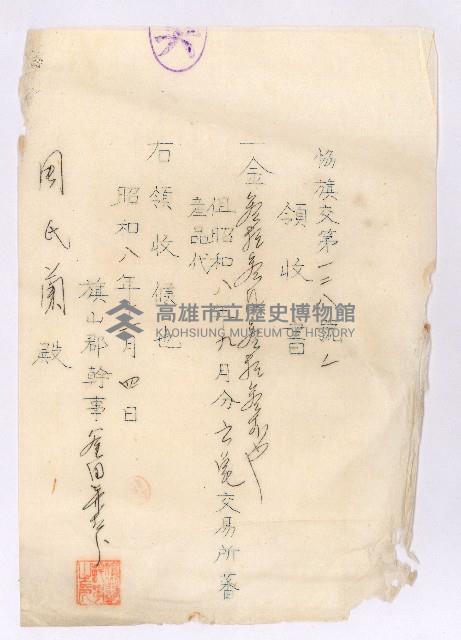 協旗交第一三八號ノ
領收書
一金參拾參円參拾參錢也
但昭和八年九月分士笼交易所蕃
產品代
右領收候也
昭和八年 月四日
旗山郡幹事
周氏蘭殿
高雄市立歷史博物館
KAOHSIUNG MUSEUM OF HISTORY